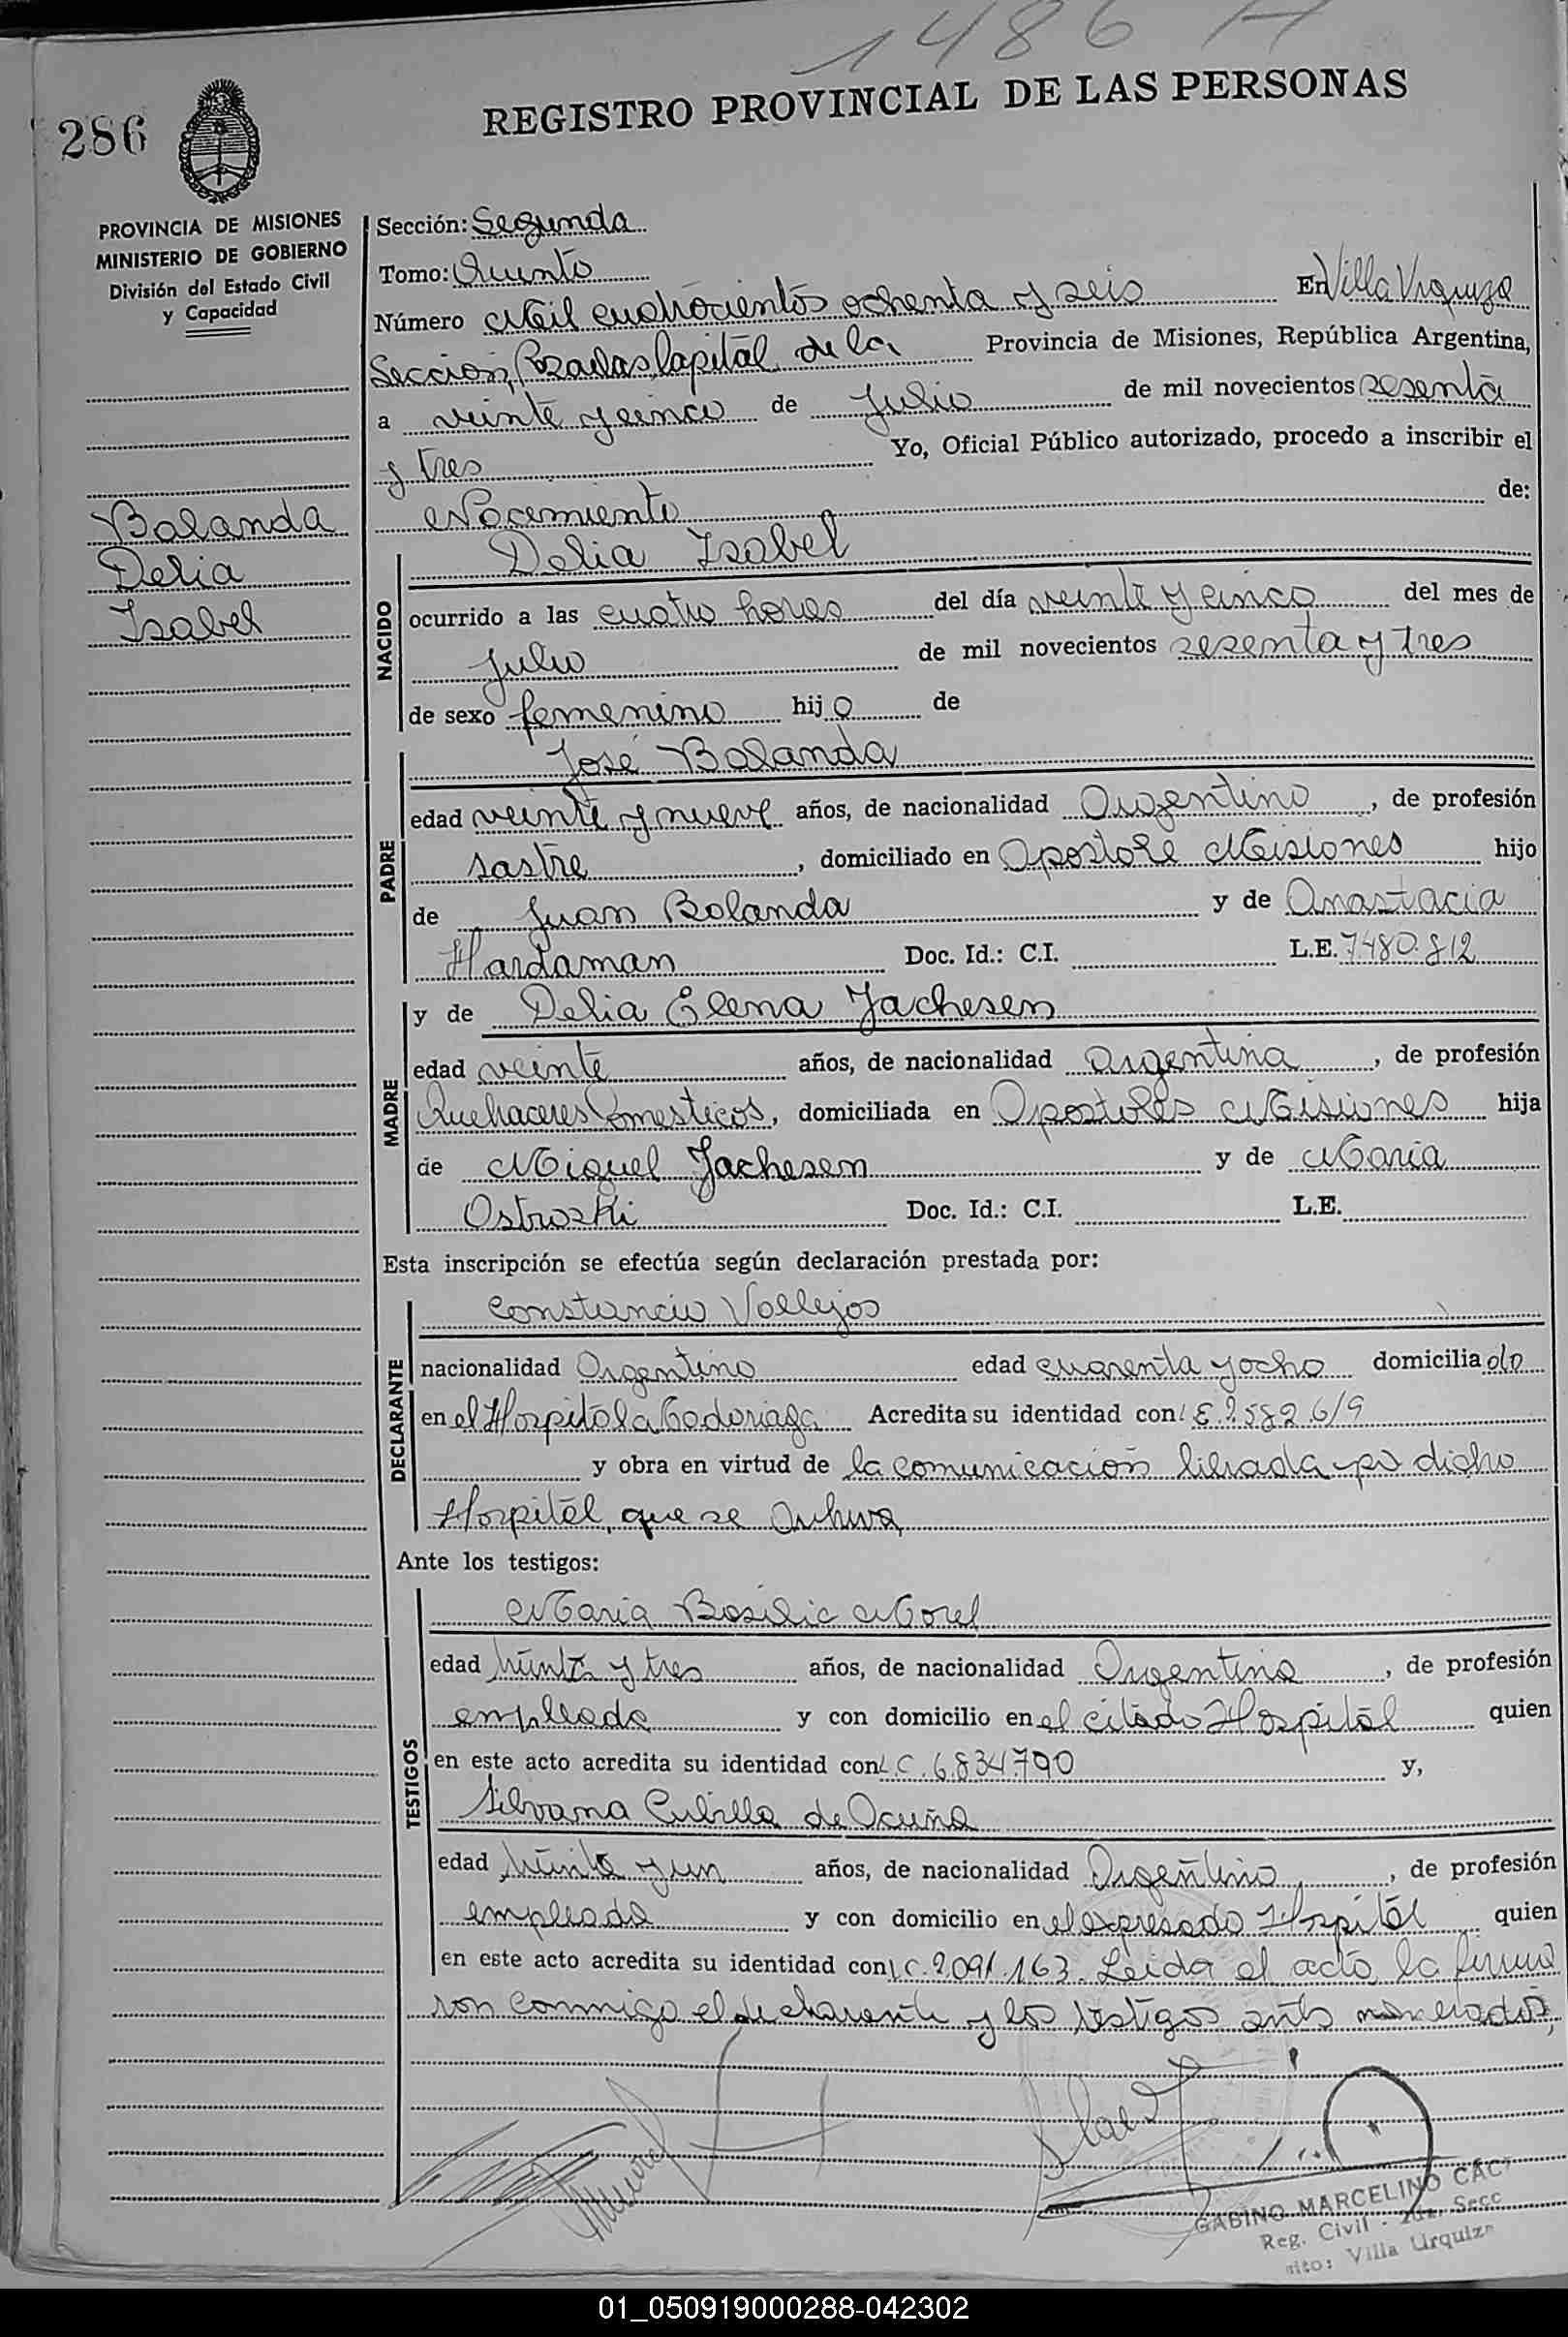 1486 A
REGISTRO PROVINCIAL DE LAS PERSONAS
286
PROVINCIA DE MISIONES
MINISTERIO DE GOBIERNO
División del Estado Civil
y Capacidad
Bolanda
Delia
Isabel
Sección: Segunda
Tomo: Quinto
Número Mil cuatrocientos ochenta y seis En Villa Urquiza
Sección, Posadas Capital de la Provincia de Misiones, República Argentina,
a veinte y cinco de Julio de mil novecientos sesenta
y tres Yo, Oficial Público autorizado, procedo a inscribir el
Nacimiento de:
NACIDO
Delia Isabel
ocurrido a las cuatro horas del día veinte y cinco del mes de
Julio de mil novecientos sesenta y tres
de sexo femenino hij a de
PADRE
José Bolanda
edad veinte y nueve años, de nacionalidad Argentino, de profesión
sastre, domiciliado en Apostole Misiones hijo
de Juan Bolanda y de Anastacia
Hardaman Doc. Id.: C.I. L.E. 7.480.812
MADRE
y de Delia Elena Jachesen
edad veinte años, de nacionalidad Argentina, de profesión
Quehaceres Domesticos, domiciliada en Apostoles Misiones hija
de Miguel Jachesen y de Maria
Ostroski Doc. Id.: C.I. L.E.
Esta inscripción se efectúa según declaración prestada por:
DECLARANTE
Constancio Vallejos
nacionalidad Argentino edad cuarenta y ocho domicilia do
en el Hospital Acredita su identidad con
y obra en virtud de la comunicación librada por dicho
Hospital, que se archiva
Ante los testigos:
TESTIGOS
Maria Basilia Morel
edad treinta y tres años, de nacionalidad Argentina, de profesión
empleada y con domicilio en el citado Hospital quien
en este acto acredita su identidad con L.C. 6.834.790 y,
Silvana Cubilla de Acuña
edad treinta y un años, de nacionalidad Argentina, de profesión
empleada y con domicilio en el expresado Hospital quien
en este acto acredita su identidad con L.C. 2.091.163. Leida el acta, la firma
ron conmigo el declarante y los testigos antes mencionados,
GABINO MARCELINO
Reg. Civil - 2da. Secc
Villa Urquiza
01_050919000288-042302